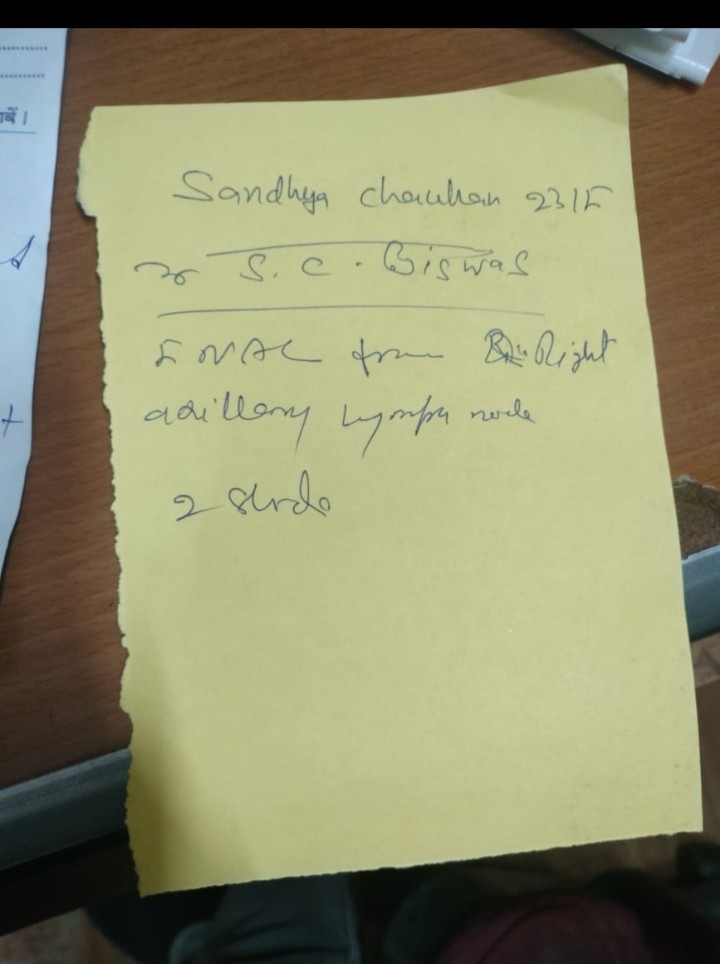 Sandhya Chauhan 23/F
S. C. Biswas
FNAC from Right
axillary lymph node
2 slide
वें।